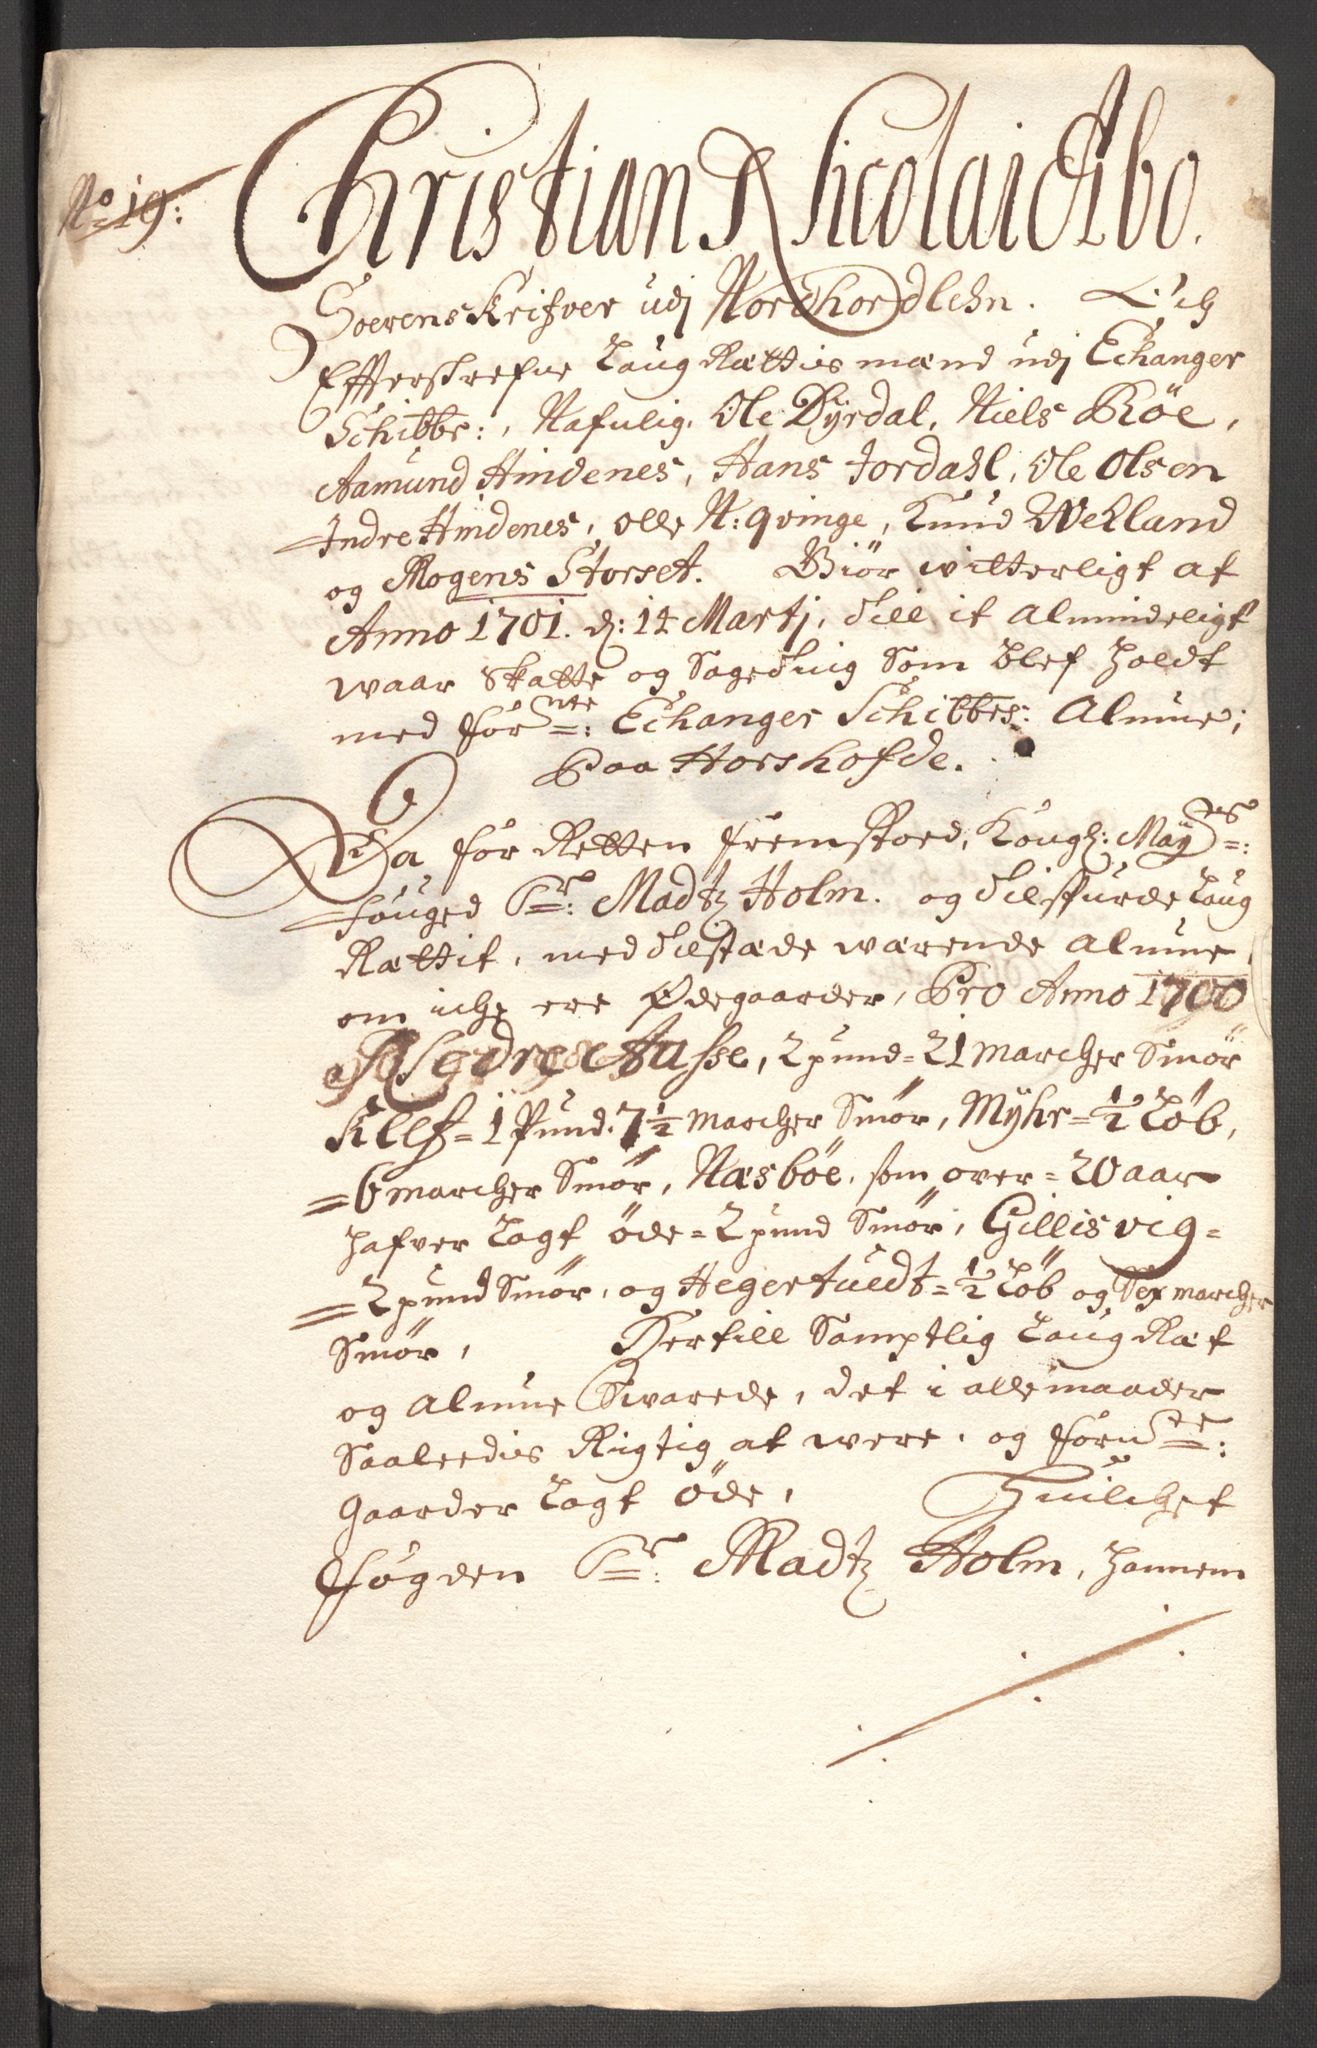 No 19:
Christian Nicolai Abo.
Soerenskrifver udj Nordhordlehn. Och
Effterskrefne Laug Rættis mænd udj Echanger
Schibbr:, Nafnlig. Ole Dÿrdal, Niels Röe,
Aamund Hindenes, Hans Jordahl, Ole Olsen
Indre Hindenes, Olle N: qvinge, Knud Wehland
og Mogens Storset. Giör witterligt at
Anno 1701. d: 14 Martj, till it Almindeligt
waar Skatte og Sageting Som blef holdt
med forn­te: Echanger Schibbes: Almue;
Paa Horshofde.
Da for Retten fremstoed, Kongl: Maÿts:
fouged Sr: Madtz Holm. og tilspurde Laug
Rættit, med tilstæde wærende Almue,
om iche ere Ødegaarder, Pro Anno 1700
Nedre Aasse, 2 pund = 21 marcher Smör
Kleff = 1 Pund. 7½ marcher Smör, Mÿhr = ½ Löb,
= 6 marcher Smör, Næsböe, som over = 20 aar
hafver Lagt öde = 2 pund Smör, Gillisvig =
= 2 pund Smör, og Hegertuedt = ½ Löb og Sex marcher
Smör, Hertill Samptlig Laug Ræt
og Almue Svarede, det i alle maader
Saaleedis Rigtig at were, og forn­te:
Gaarder Lagt öde, Huilchet
fogden Sr: Madtz Holm, hannem